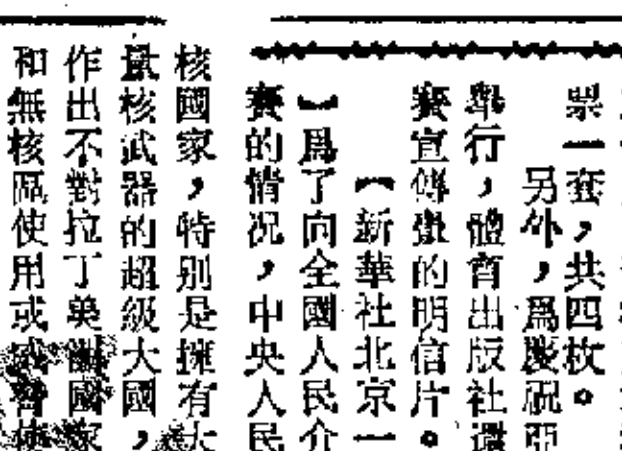 票一套，共四枚。
另外，爲慶祝亞
舉行，體育出版社還
賽宣傳畫的明信片。
【新華社北京一
】爲了向全國人民介
賽的情况，中央人民
核國家，特别是擁有大
量核武器的超級大國，
作出不對拉丁美洲國家
和無核區使用或